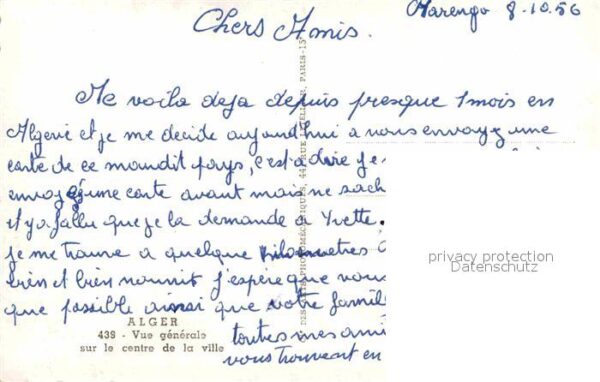 Marengo 8.10.56
Chers Amis.
Me voila deja depuis presque 1 mois en
Algerie et je me decide aujourdhui a vous envoyez une
carte de ce maudit pays, c'est à dire je
envoyez une carte avant mais ne sach
il y a fallu que je la demande a Yvette.
je me trouve a quelque kilometres
bien et bien nourrit j'espere que vous
que possible ainsi que votre famil
toutes mes ami
vous trouvent en
ALGER
439 - Vue générale
sur le centre de la ville
PHOTOMÉCANIQUES, 44, RUE LETELLIER, PARIS-15
privacy protection
Datenschutz